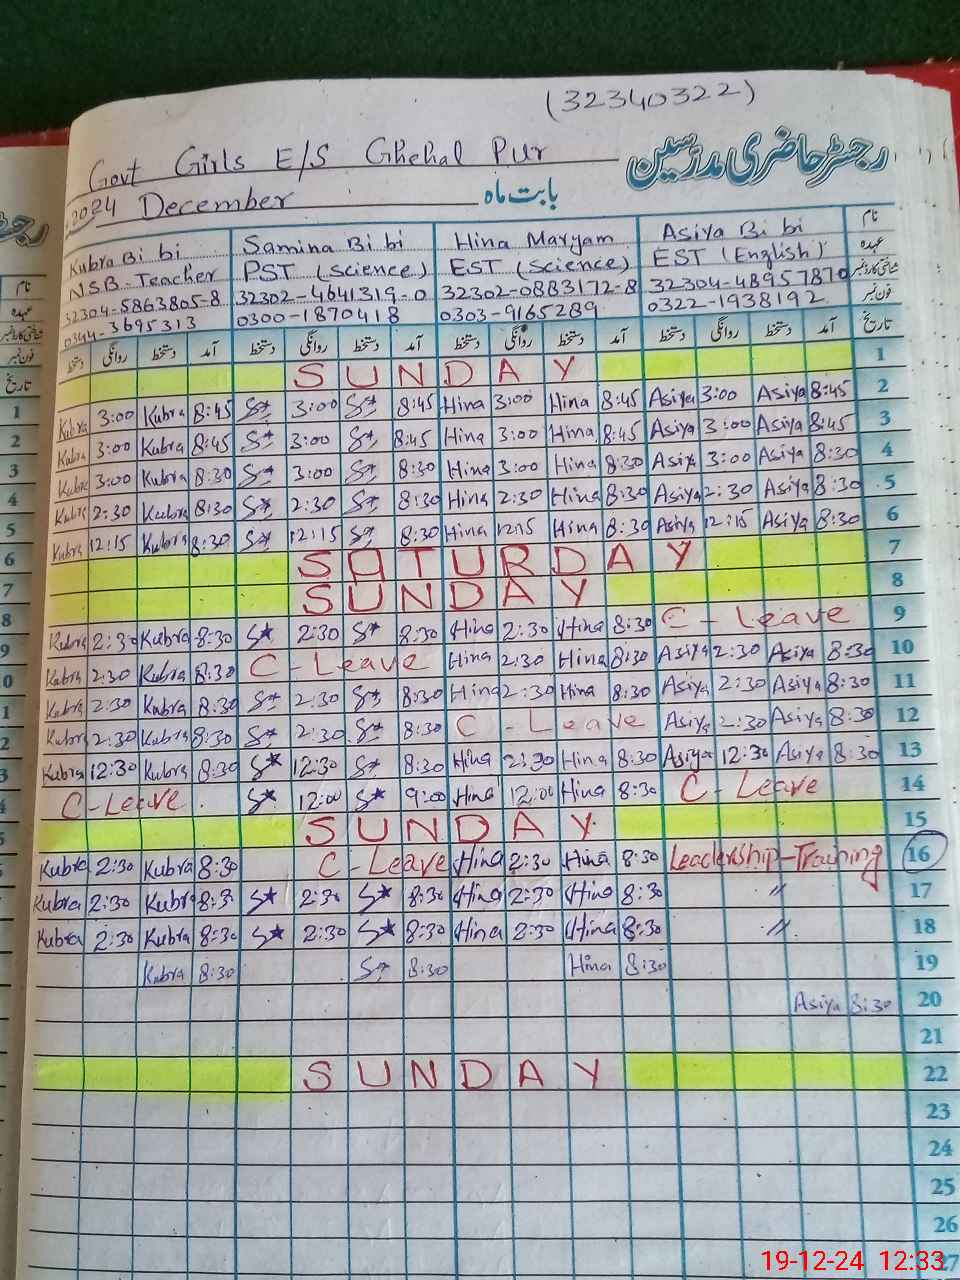 (32340322)
Govt Girls E/S Ghehal Pur رجسٹر حاضری مدرسین
2024 December بابت ماہ
Kubra Bi bi Samina Bi bi Hina Maryam Asiya Bi bi نام
NSB-Teacher PST (Science) EST (Science) EST (English) عہدہ
32304-5863805-8 32302-4641319-0 32302-0883172-8 32304-4895787 شناختی کارڈ نمبر
0344-3695313 0300-1870418 0303-9165289 0322-1938192 فون نمبر
دستخط روانگی دستخط آمد دستخط روانگی دستخط آمد دستخط روانگی دستخط آمد دستخط روانگی دستخط آمد تاریخ
SUNDAY 1
Kubra 3:00 Kubra 8:45 S* 3:00 S* 8:45 Hina 3:00 Hina 8:45 Asiya 3:00 Asiya 8:45 2
Kubra 3:00 Kubra 8:45 S* 3:00 S* 8:45 Hina 3:00 Hina 8:45 Asiya 3:00 Asiya 8:45 3
Kubra 3:00 Kubra 8:30 S* 3:00 S* 8:30 Hina 3:00 Hina 8:30 Asiya 3:00 Asiya 8:30 4
Kubra 2:30 Kubra 8:30 S* 2:30 S* 8:30 Hina 2:30 Hina 8:30 Asiya 2:30 Asiya 8:30 5
Kubra 12:15 Kubra 8:30 S* 12:15 S* 8:30 Hina 12:15 Hina 8:30 Asiya 12:15 Asiya 8:30 6
SUTURDAY 7
SUNDAY 8
Kubra 2:30 Kubra 8:30 S* 2:30 S* 8:30 Hina 2:30 Hina 8:30 C - Leave 9
Kubra 2:30 Kubra 8:30 C - Leave Hina 2:30 Hina 8:30 Asiya 2:30 Asiya 8:30 10
Kubra 2:30 Kubra 8:30 S* 2:30 S* 8:30 Hina 2:30 Hina 8:30 Asiya 2:30 Asiya 8:30 11
Kubra 2:30 Kubra 8:30 S* 2:30 S* 8:30 C - Leave Asiya 2:30 Asiya 8:30 12
Kubra 12:30 Kubra 8:30 S* 12:30 S* 8:30 Hina 2:30 Hina 8:30 Asiya 12:30 Asiya 8:30 13
C-Leave S* 12:00 S* 9:00 Hina 12:00 Hina 8:30 C - Leave 14
SUNDAY 15
Kubra 2:30 Kubra 8:30 C - Leave Hina 2:30 Hina 8:30 Leadership-Training 16
Kubra 2:30 Kubra 8:3 S* 2:30 S* 8:30 Hina 2:30 Hina 8:30 〃 17
Kubra 2:30 Kubra 8:30 S* 2:30 S* 8:30 Hina 2:30 Hina 8:30 〃 18
Kubra 8:30 S* 8:30 Hina 8:30 19
Asiya 8:30 20
21
SUNDAY 22
23
24
25
26
27
19-12-24 12:33